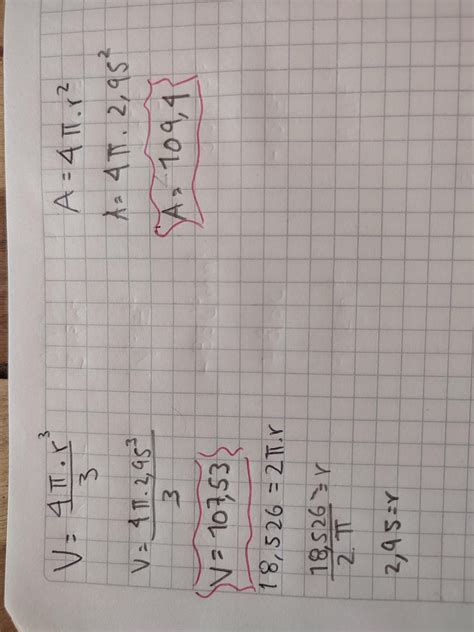 V = 4π·r³/3
V = 4π·2,95³/3
V = 107,53
18,526 = 2π·r
18,526/2π = r
2,95 = r
A = 4π·r²
A = 4π·2,95²
A = 109,4